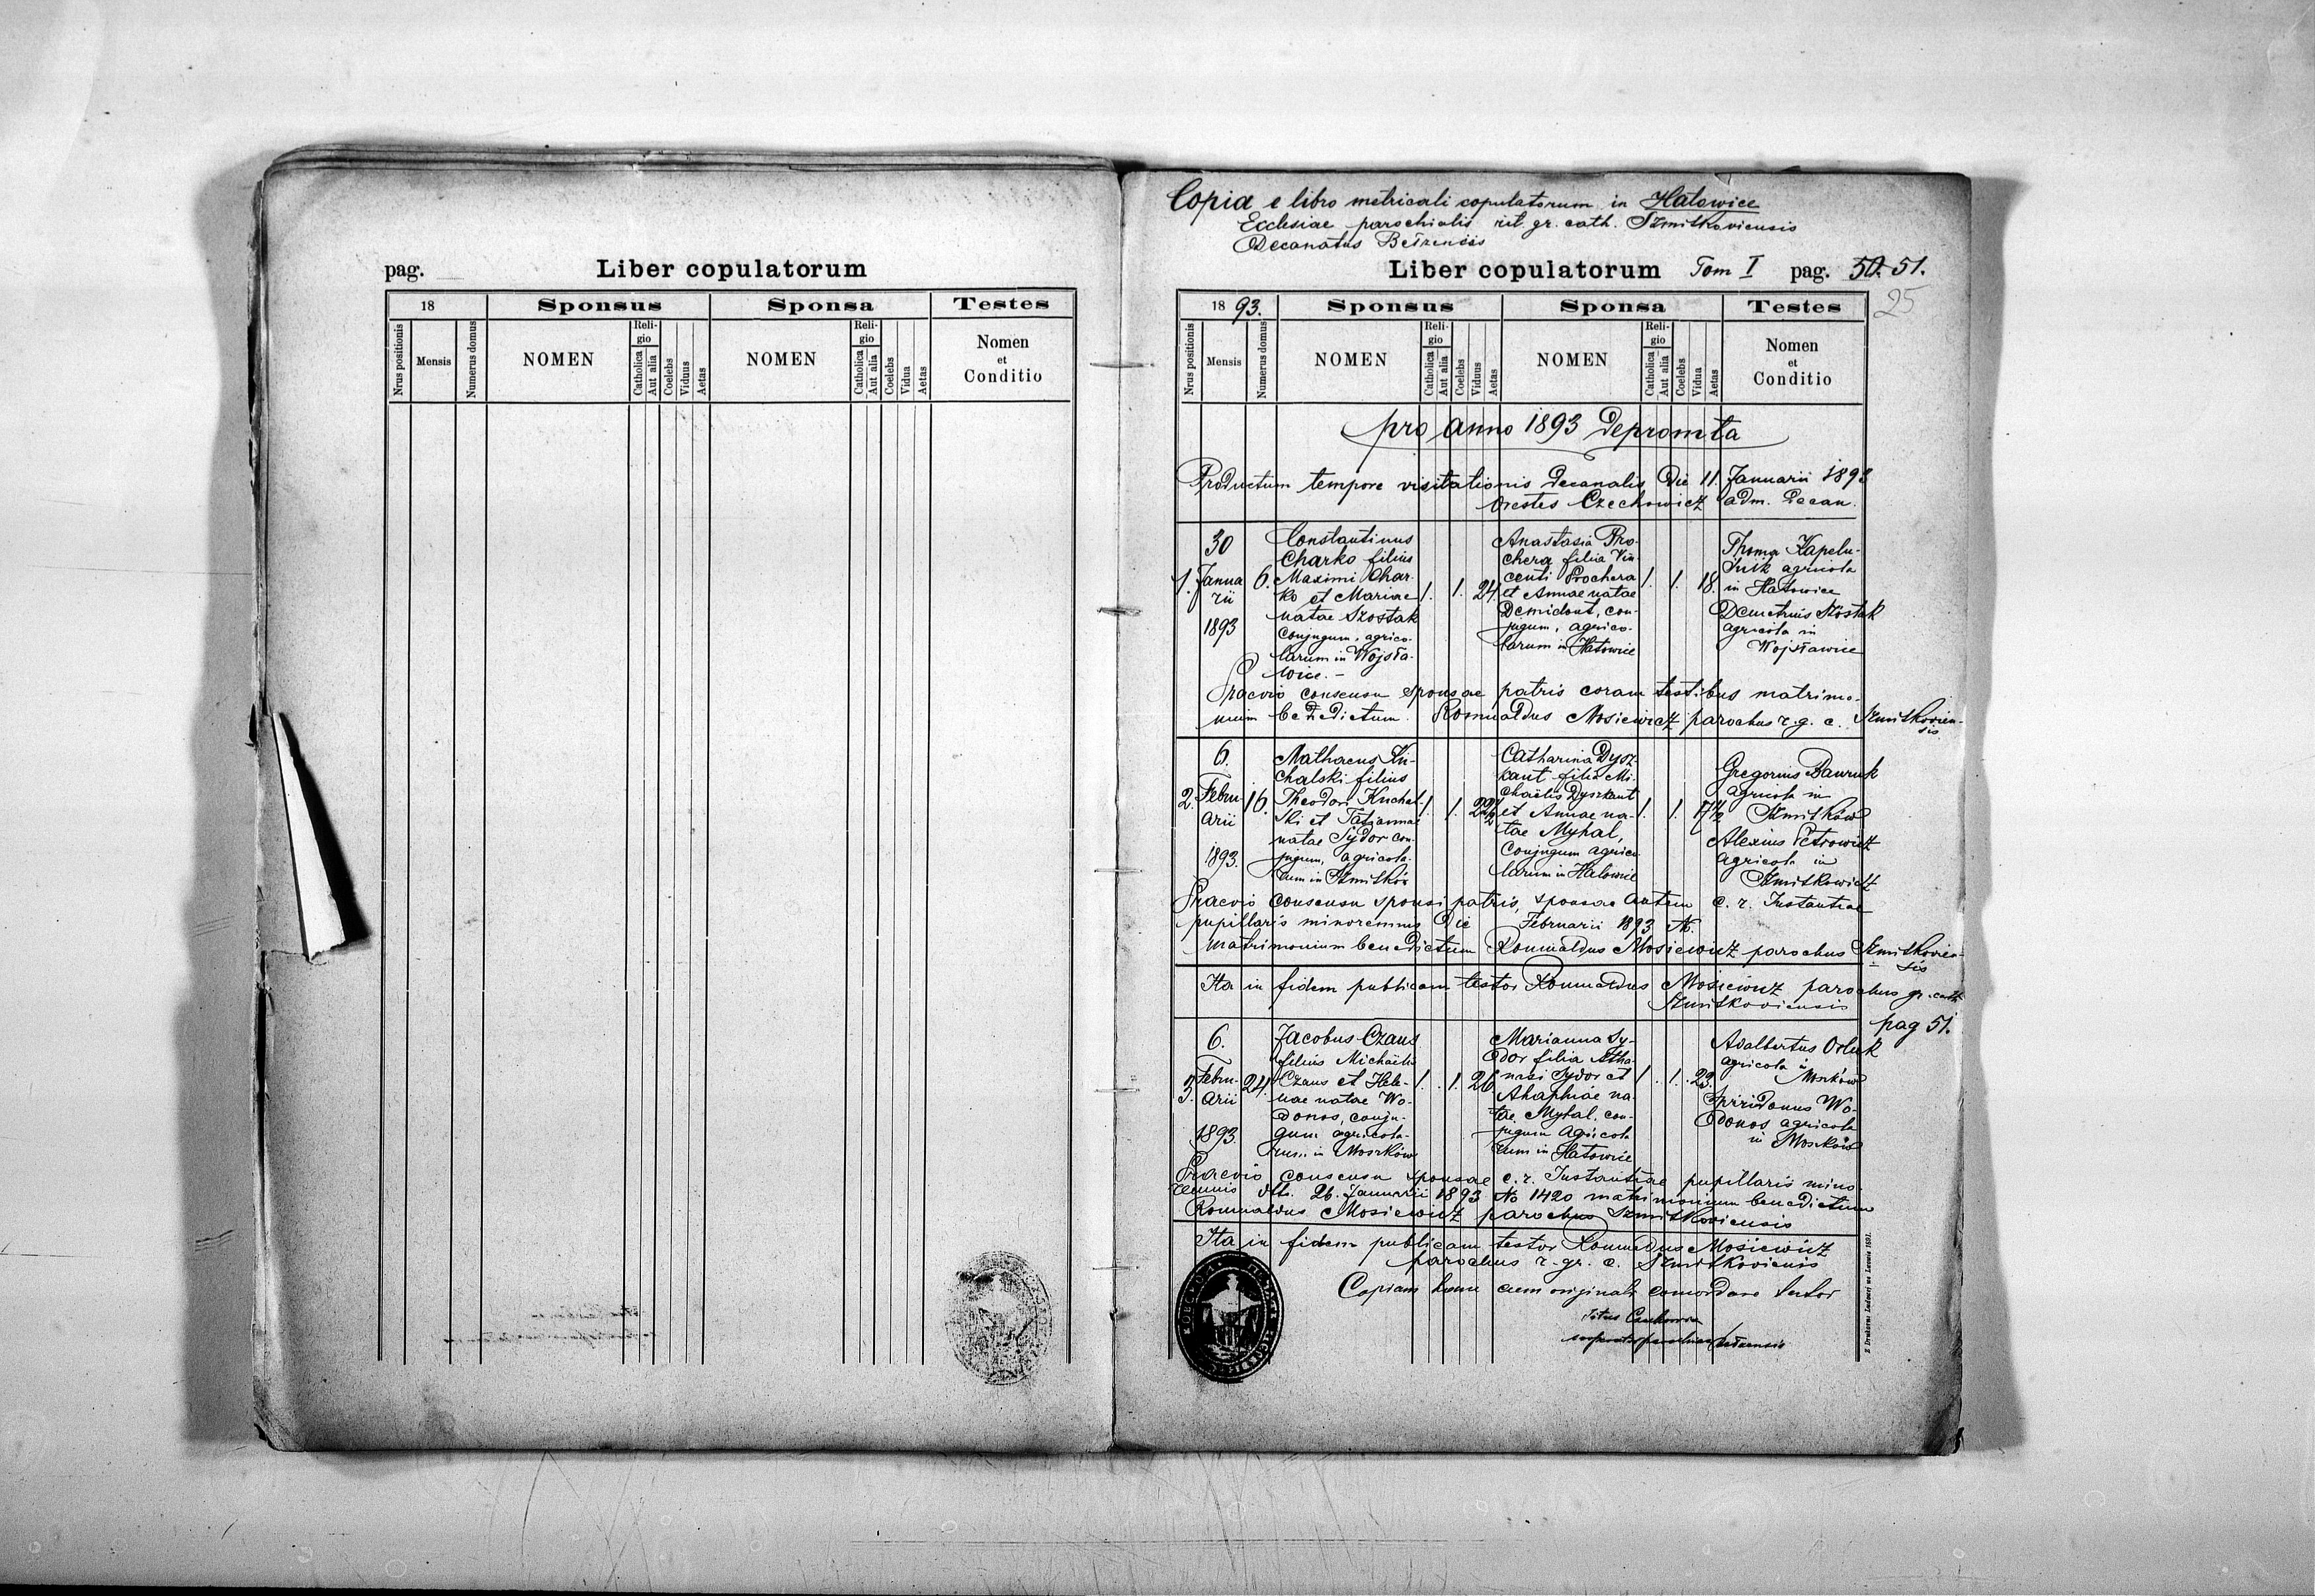 pag.
Liber copulatorum
18
Sponsus
Sponsa
Testes
Nrus positionis
Mensis
Numerus domus
NOMEN
Religio
Catholica
Aut alia
Coelebs
Viduus
Aetas
NOMEN
Religio
Catholica
Aut alia
Coelebs
Vidua
Aetas
Nomen
et
Conditio
Copia e libro metricali copulatorum in Hatowice
Ecclesiae parochialis rit. gr. cath. Szmitkoviensis
Decanatus Bełzensis
Liber copulatorum Tom I pag. 50. 51.
25
1893.
Sponsus
Sponsa
Testes
Nrus positionis
Mensis
Numerus domus
NOMEN
Religio
Catholica
Aut alia
Coelebs
Viduus
Aetas
NOMEN
Religio
Catholica
Aut alia
Coelebs
Vidua
Aetas
Nomen
et
Conditio
pro anno 1893 Depromta
Productum tempore visitationis decanalis Die 11. Januarii 1893
Orestes Czechowicz adm. Decan.
1.
30
Janua
rii
1893
6.
Constantinus
Charko filius
Maximi Char-
ko et Mariae
natae Szostak
Conjugum, agrico-
larum in Wojsła-
wice.-
1. 1. 24.
Anastasia Pro-
chera filia Vin-
centi Prochera
et Annae natae
Demidont, con-
jugum, agrico-
larum in Hatowice
1. 1. 18.
Thoma Kapelu-
agricola
in Hatowice
Demetrius Szostak
agricola in
Wojsławice
Praevio consensu sponsae patris coram testibus matrimo-
nium benedictum. Romualdus Mosiewicz parochus r. g. c. Szmitkovien-
sis
2.
6.
Febru-
arii
1893.
16.
Mathaeus Ku-
chalski filius
Theodori Kuchal-
ski et Tatjannae
natae Sydor con-
jugum, agricola-
rum in Szmitków
1. 1. 22 1/2
Catharina Dysz-
kant filia Mi-
chaelis Dyszkant
et Annae na-
tae Myhal,
Conjugum agrico-
larum in Hatowice
1. 1. 17 1/2
Gregorius Bawruk
agricola in
Szmitków
Alexius Petrowicz
agricola in
Praevio consensu sponsi patris, sponsae autem c. r. Instantiae
pupillaris minorennis Die Februarii 1893 N.
matrimonium benedictum Romualdus Mosiewicz parochus Szmitkovien-
sis
Ita in fidem publicam testor Romualdus Mosiewicz parochus gr. cath.
Szmitkoviensis
pag 51.
3.
6.
Febru-
arii
1893.
24.
Jacobus Czaus
filius Michaelis
Czaus et Hele-
nae natae Wo-
donos, conju-
gum agricola-
rum in Moszków
1. 1. 26
Marianna Sy-
dor filia Atha-
nasi Sydor et
Ahaphiae na-
tae Myhal, con-
jugum agricola
rum in Hatowice
1. 1. 23.
Adalbertus Orluk
agricola in
Moszków
Spiridonus Wo-
donos agricola
in Moszków
Praevio consensu sponsae c. r. Instantiae pupillaris mino-
rennis dtto. 26. Januarii 1893 No 1420 matrimonium benedictum
Romualdus Mosiewicz parochus Szmitkoviensis
Ita in fidem publicam testor Romualdus Mosiewicz
parochus r. gr. c. Szmitkoviensis
Copiam hanc cum originali concordare testor